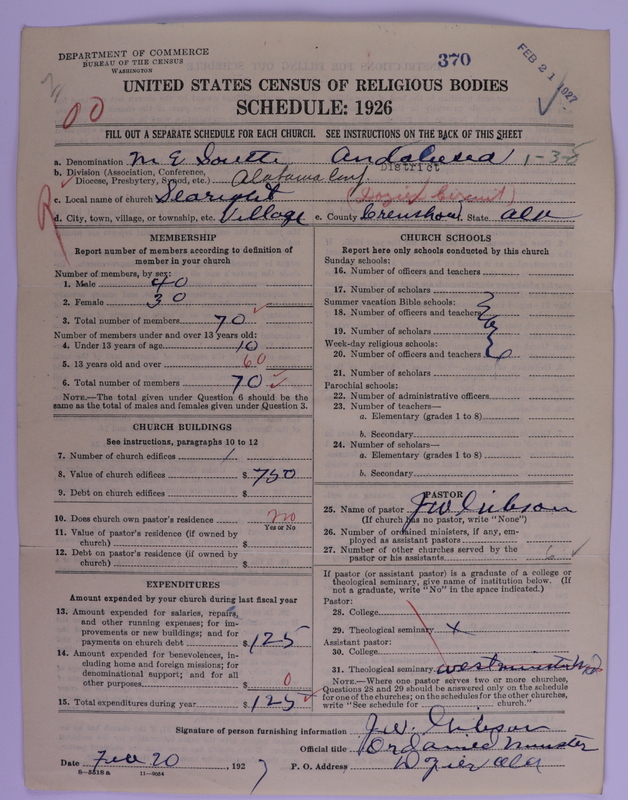 DEPARTMENT OF COMMERCE
BUREAU OF THE CENSUS
WASHINGTON
370
FEB 21 1927
00
UNITED STATES CENSUS OF RELIGIOUS BODIES
SCHEDULE: 1926
FILL OUT A SEPARATE SCHEDULE FOR EACH CHURCH. SEE INSTRUCTIONS ON THE BACK OF THIS SHEET
a. Denomination M E South Andalusia 1-3-5
b. Division (Association, Conference, District
Diocese, Presbytery, Synod, etc.) Alabama Conf
c. Local name of church Searight (Dozier Circuit)
d. City, town, village, or township, etc. Village e. County Crenshaw State Ala
MEMBERSHIP
Report number of members according to definition of
member in your church
Number of members, by sex:
1. Male 40
2. Female 30
3. Total number of members 70
Number of members under and over 13 years old:
4. Under 13 years of age 10
5. 13 years old and over 60
6. Total number of members 70
NOTE.—The total given under Question 6 should be the
same as the total of males and females given under Question 3.
CHURCH BUILDINGS
See instructions, paragraphs 10 to 12
7. Number of church edifices 1
8. Value of church edifices $ 750
9. Debt on church edifices $
10. Does church own pastor's residence no
Yes or No
11. Value of pastor's residence (if owned by
church) $
12. Debt on pastor's residence (if owned by
church) $
EXPENDITURES
Amount expended by your church during last fiscal year
13. Amount expended for salaries, repairs,
and other running expenses; for im-
provements or new buildings; and for
payments on church debt $ 125
14. Amount expended for benevolences, in-
cluding home and foreign missions; for
denominational support; and for all
other purposes $ 0
15. Total expenditures during year $ 125
CHURCH SCHOOLS
Report here only schools conducted by this church
Sunday schools:
16. Number of officers and teachers
17. Number of scholars
Summer vacation Bible schools:
18. Number of officers and teachers
19. Number of scholars
Week-day religious schools:
20. Number of officers and teachers
21. Number of scholars
Parochial schools:
22. Number of administrative officers
23. Number of teachers—
a. Elementary (grades 1 to 8)
b. Secondary
24. Number of scholars—
a. Elementary (grades 1 to 8)
b. Secondary
PASTOR
25. Name of pastor J W Gibson
(If church has no pastor, write "None")
26. Number of ordained ministers, if any, em-
ployed as assistant pastors
27. Number of other churches served by the
pastor or his assistants 6
If pastor (or assistant pastor) is a graduate of a college or
theological seminary, give name of institution below. (If
not a graduate, write "No" in the space indicated.)
Pastor:
28. College
29. Theological seminary x
Assistant pastor:
30. College
31. Theological seminary Westminster Md
NOTE.—Where one pastor serves two or more churches,
Questions 28 and 29 should be answered only on the schedule
for one of the churches; on the schedules for the other churches,
write "See schedule for church."
Signature of person furnishing information J. W. Gibson
Official title Ordained Minister
Date Feb 20, 1927 P. O. Address Dozier Ala
8—5518 a 11—9034